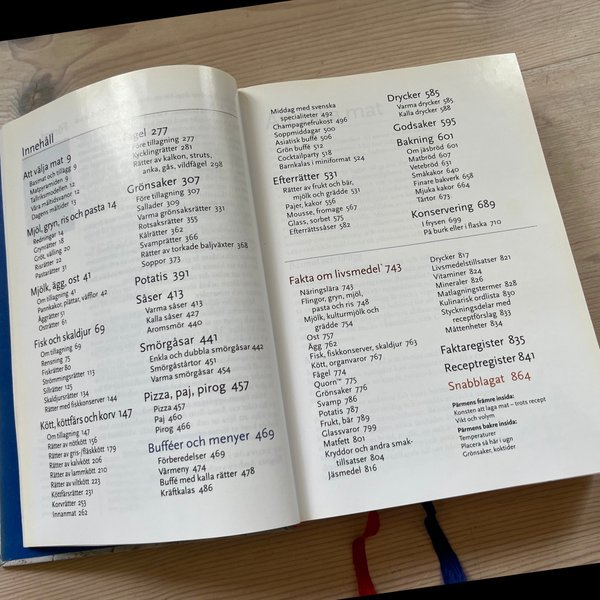 Innehåll
Att välja mat 9
Basmat och tillägg 9
Matpyramiden 9
Tallriksmodellen 12
Våra måltidsvanor 12
Dagens måltider 13
Mjöl, gryn, ris och pasta 14
Redningar 14
Grynrätter 18
Gröt, välling 20
Risrätter 22
Pastarätter 31
Mjölk, ägg, ost 41
Om tillagning 41
Pannkakor, plättar, våfflor 42
Äggrätter 51
Osträtter 61
Fisk och skaldjur 69
Om tillagning 69
Rensning 75
Fiskrätter 80
Strömmingsrätter 113
Sillrätter 125
Skaldjursrätter 134
Rätter med fiskkonserver 144
Kött, köttfärs och korv 147
Om tillagning 147
Rätter av nötkött 156
Rätter av gris-/fläskkött 179
Rätter av kalvkött 206
Rätter av lammkött 210
Rätter av viltkött 223
Köttfärsrätter 231
Korvrätter 253
Innanmat 262
Fågel 277
Före tillagning 277
Kycklingrätter 281
Rätter av kalkon, struts,
anka, gås, vildfågel 298
Grönsaker 307
Före tillagning 307
Sallader 309
Varma grönsaksrätter 331
Rotsaksrätter 355
Kålrätter 362
Svamprätter 366
Rätter av torkade baljväxter 368
Soppor 373
Potatis 391
Såser 413
Varma såser 413
Kalla såser 427
Aromsmör 440
Smörgåsar 441
Enkla och dubbla smörgåsar 442
Smörgåstårtor 451
Varma smörgåsar 454
Pizza, paj, pirog 457
Pizza 457
Paj 460
Pirog 466
Bufféer och menyer 469
Förberedelser 469
Värmeny 474
Buffé med kalla rätter 478
Kräftkalas 486
Middag med svenska
specialiteter 492
Champagnefrukost 496
Soppmiddagar 500
Asiatisk buffé 506
Grön buffé 512
Cocktailparty 518
Barnkalas i miniformat 524
Efterrätter 531
Rätter av frukt och bär,
mjölk och grädde 531
Pajer, kakor 556
Mousse, fromage 567
Glass, sorbet 575
Efterrättssåser 582
Drycker 585
Varma drycker 585
Kalla drycker 588
Godsaker 595
Bakning 601
Om jäsbröd 601
Matbröd 607
Vetebröd 631
Småkakor 640
Finare bakverk 658
Mjuka kakor 664
Tårtor 673
Konservering 689
I frysen 699
På burk eller i flaska 710
Fakta om livsmedel 743
Näringslära 743
Flingor, gryn, mjöl,
pasta och ris 748
Mjölk, kulturmjölk och
grädde 754
Ost 757
Ägg 762
Fisk, fiskkonserver, skaldjur 763
Kött, organvaror 767
Fågel 774
Quorn™ 775
Grönsaker 776
Svamp 786
Potatis 787
Frukt, bär 789
Glassvaror 799
Matfett 801
Kryddor och andra smak-
tillsatser 804
Jäsmedel 816
Drycker 817
Livsmedelstillsatser 821
Vitaminer 824
Mineraler 826
Matlagningstermer 828
Kulinarisk ordlista 830
Styckningsdelar med
receptförslag 833
Måttenheter 834
Faktaregister 835
Receptregister 841
Snabblagat 864
Pärmens främre insida:
Konsten att laga mat – trots recept
Vikt och volym
Pärmens bakre insida:
Temperaturer
Placera så här i ugn
Grönsaker, koktider